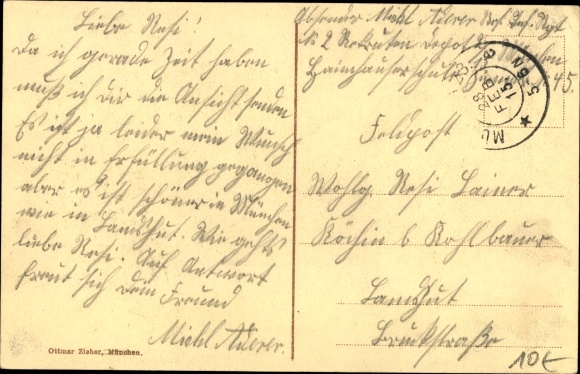 Liebe Resi!
Da ich gerade Zeit haben
muß ich dir die Ansicht senden
Es ist ja leider mein Wunsch
nicht in Erfüllung gegangen
aber es ist schöner in München
wie in Landshut. Wie gehts
liebe Resi. Auf Antwort
freut sich dein Freund
Michl Auerer
Ottmar Zieher, München.
Absender Michl Auerer Res. Inf. Rgt
No 2 Rekruten Depot
Haimhauserschule
45.
MÜ
28 FEB
15
5-6 N
Feldpost
Wohlg Resi Lainer
Köchin b Kohlbauer
Landshut
Bruckstraße
10€